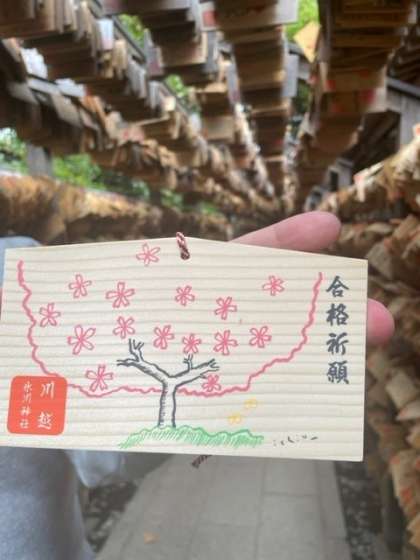 合格祈願
川越
氷川神社